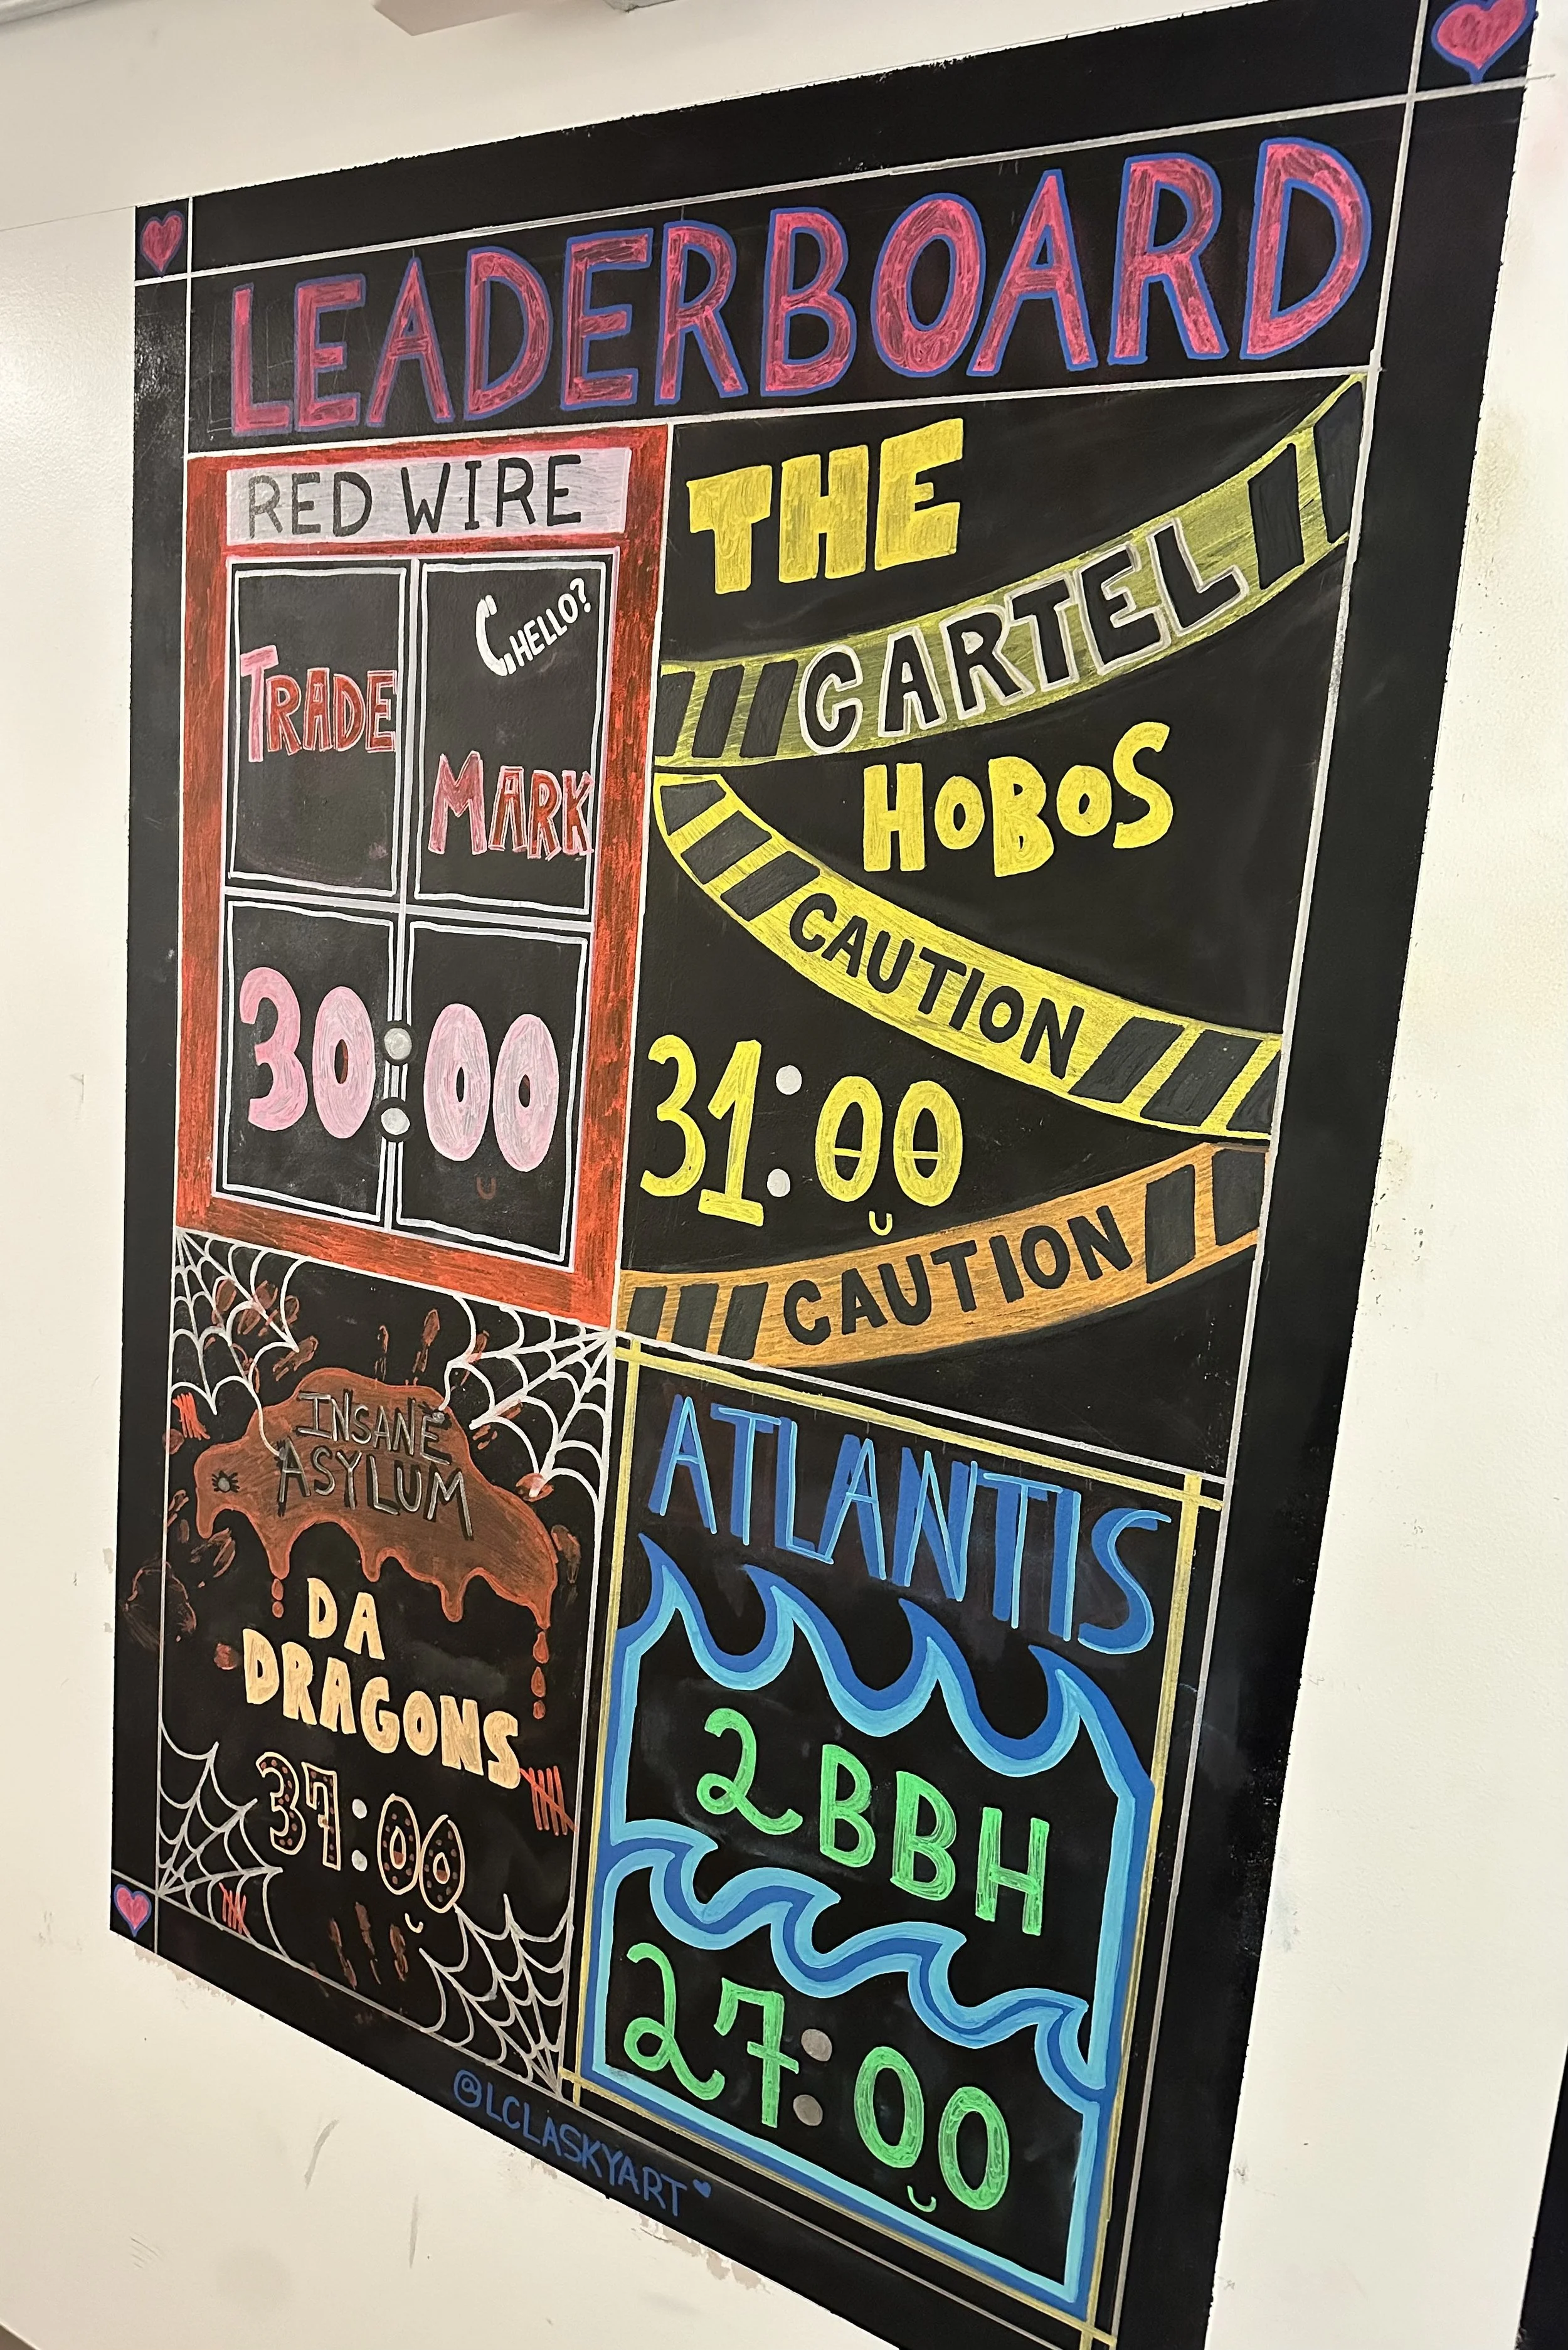 LEADERBOARD
RED WIRE
HELLO?
TRADE
MARK
30:00
THE
CARTEL
HOBOS
CAUTION
31:00
CAUTION
INSANE
ASYLUM
DA
DRAGONS
37:00
ATLANTIS
2BBH
27:00
@LCLASKYART